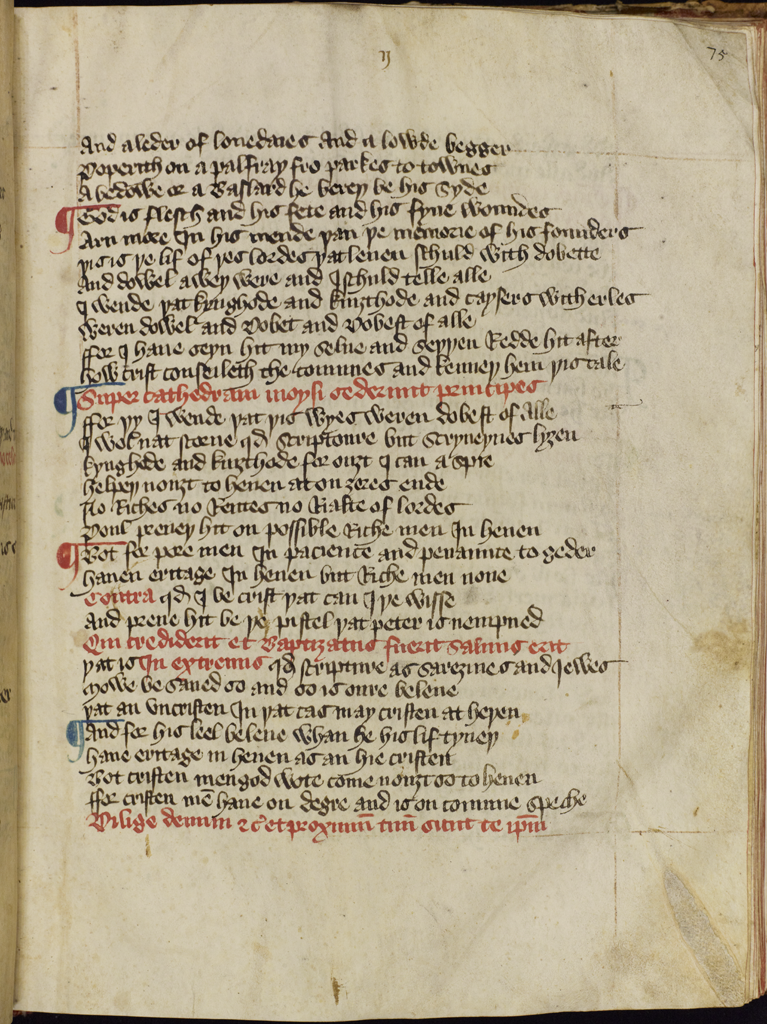 ij
75
And a leder of louedaies And a lowde begger
Poperith on a palfray fro parkes to townes
A bedowe or a Baslard he berey be his syde
God is flesch and his fete and his fyue woundes
Arn more In his mende yan ye memorie of his founders
yis is ye lif of yes lordes yat leuen schuld with dobette
And dowel awey were and I schuld telle alle
I wende yat kynghode and knizthode and caysers with erles
weren dowel and Dobet and Dobest of alle
ffor I haue seyn hit my selue and seyyen Redde hit after
how crist conseileth the comunes and kenney hem yis tale
Super cathedram moysi sederunt principes
ffor yy I wende yat yis wyes weren dobest of alle
I wol nat scorne qd Scriptoure but scryueynes lyzen
kynghede and knizthode for ouzt I can aspie
helpey nouzt to heuen at on zeres ende
No Riches no Rentes no Rialte of lordes
Poul preuey hit on possible Riche men In heuen
Bot for pore men In pacience and penaunce to geder
hauen eritage In heuen but Riche men none
Contra qd I be crist yat can I ye wisse
And preue hit be ye pistel yat peter is nempned
Qui crediderit et Baptizatus fuerit saluus erit
yat is In extremis qd scripture as sarezines and Jewes
Mowe be saued so and so is oure beleue
yat an vncristen In yat cas may cristen at heyen
And for his leel beleue whan he his lif tyney
haue eritage in heuen as an hie cristen
Bot cristen men god wote come nouzt so to heuen
ffor cristen mē haue on degre and is on comune speche
Dilige deum & c' et proximū tuū sicut te ipm̄